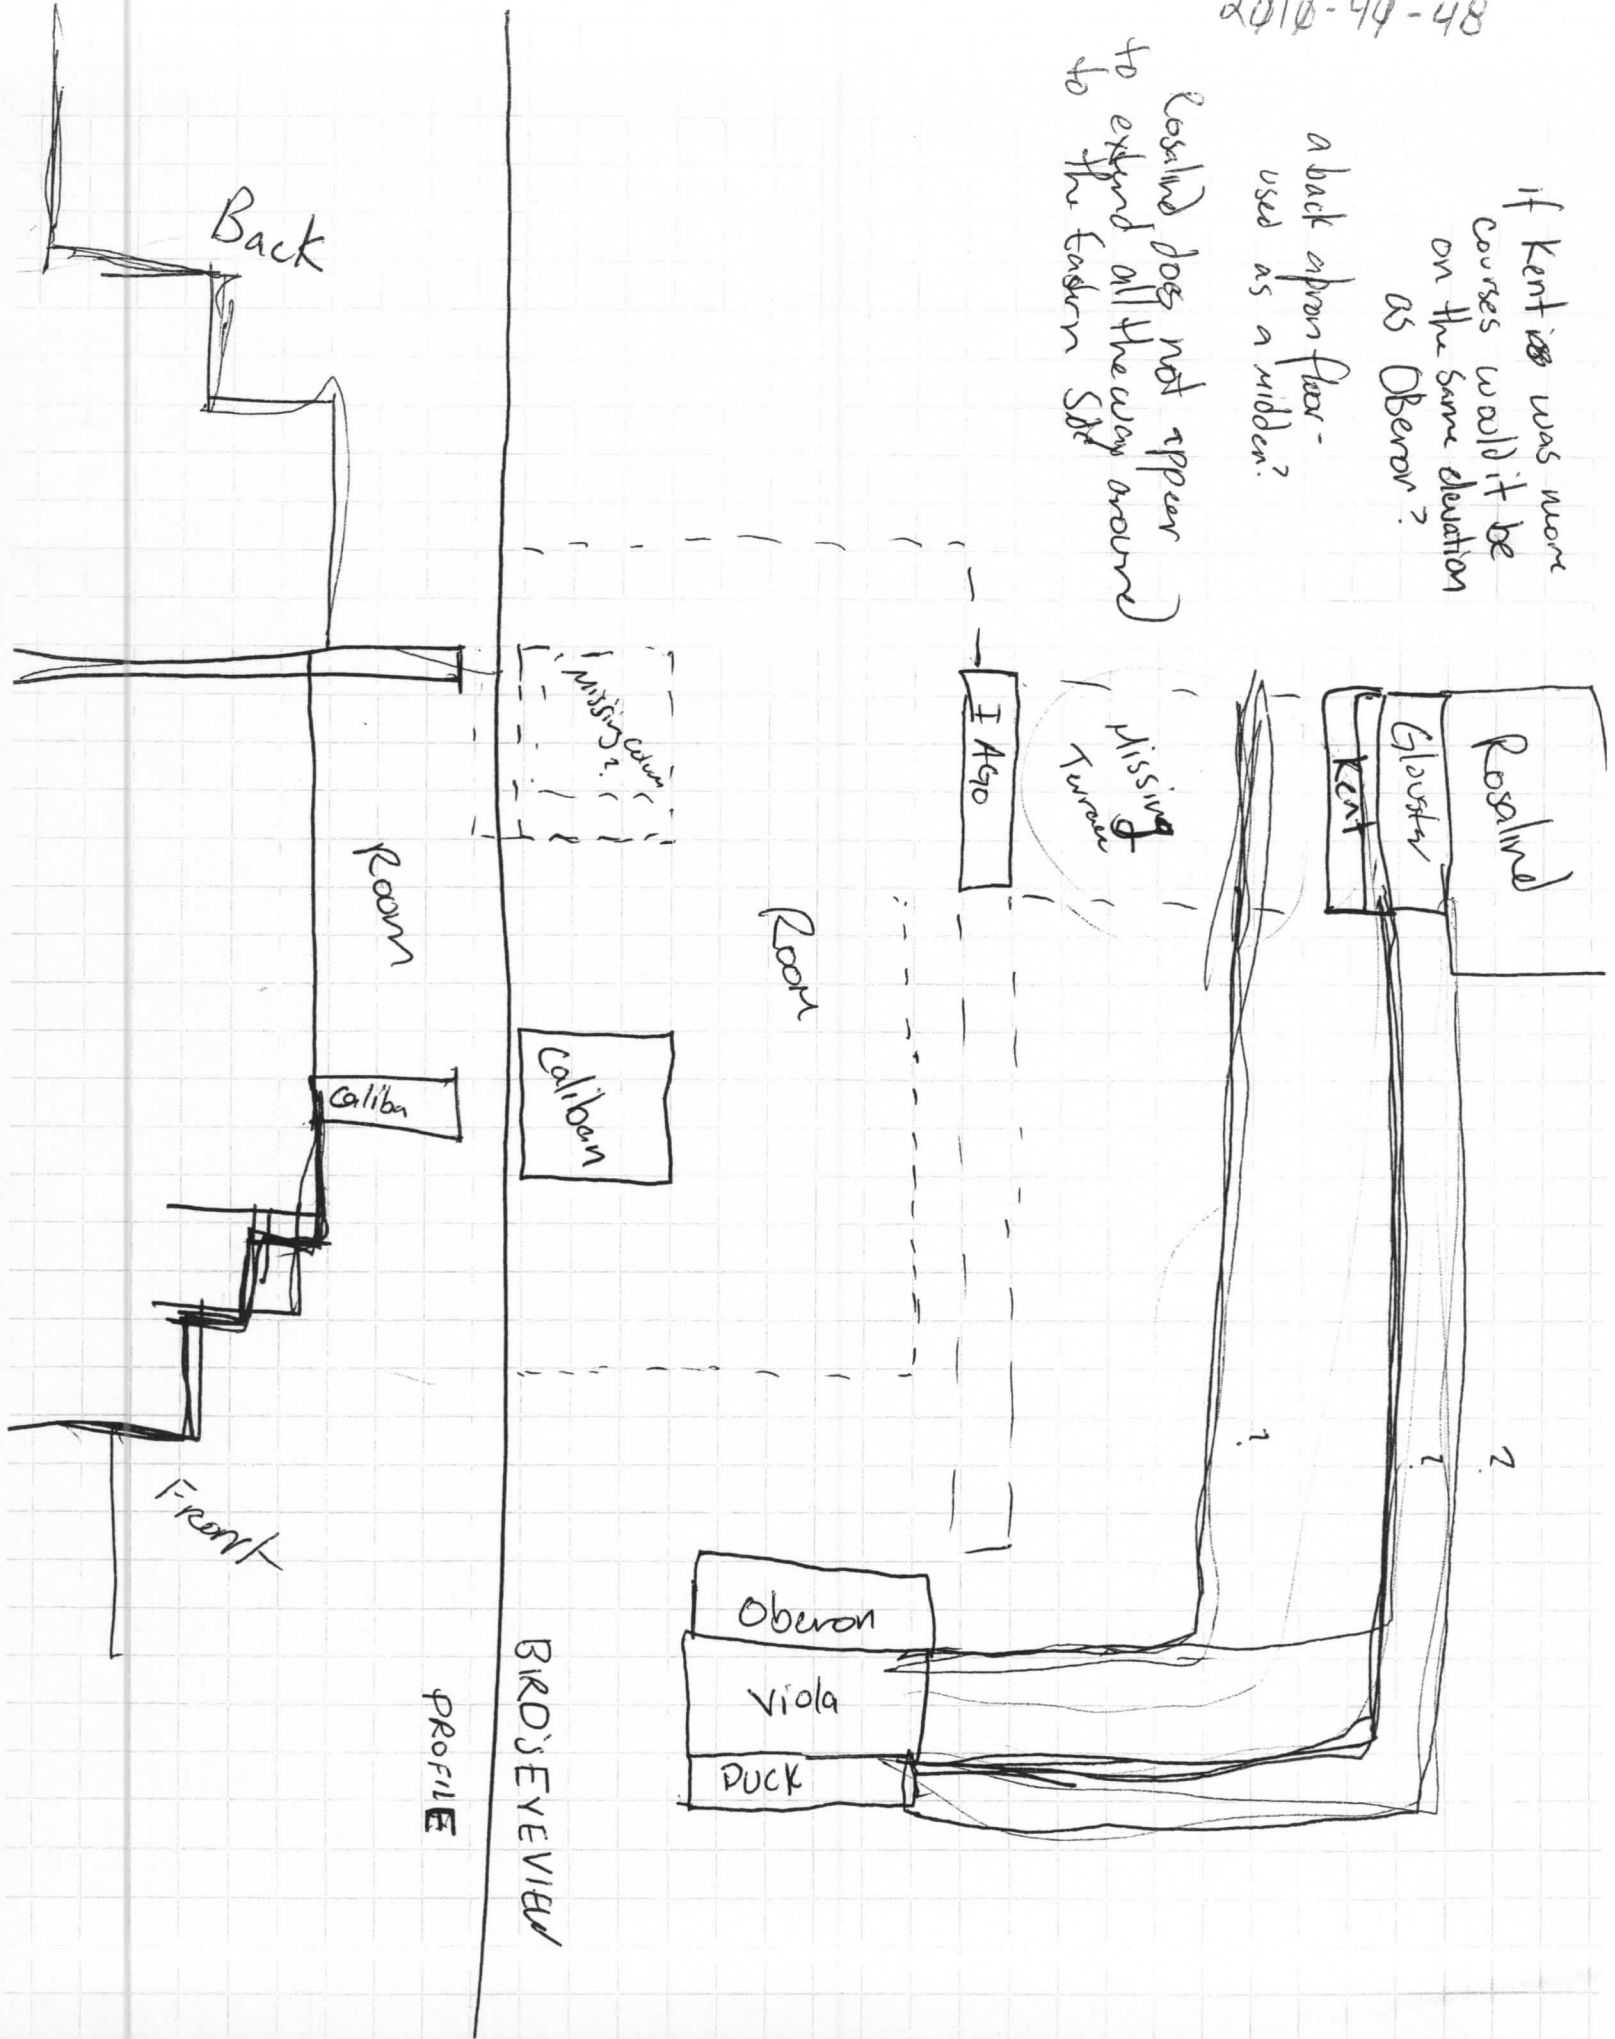 if Kent was more
courses would it be
on the same elevation
as OBeron?
a back apron floor-
used as a midden?
Rosalind does not appear
to extend all the way around
to the Eastern Side
Rosalind
Glouster
Kent
Missing
Terrace
I AGO
Missing column?
Room
Caliban
?
?
?
Oberon
Viola
PUCK
BIRD'S EYE VIEW
PROFILE
Back
Room
Caliba
Front